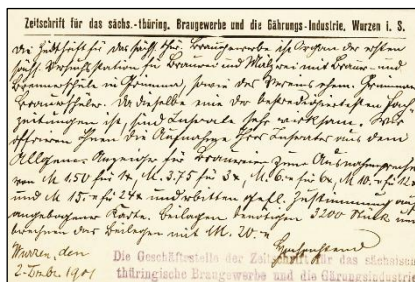 Zeitschrift für das sächs.-thüring. Braugewerbe und die Gährungs-Industrie, Wurzen i. S.
Die Zeitschrift für das sächs. thür. Braugewerbe ist Organ der ersten
sächs. Versuchsstation für Brauerei und Mälzerei mit Brauer- und
Brennerschule in Grimma, sowie des Vereins ehem. Grimmaer
Brauerschüler. Da dieselbe eine der bestredigiertesten Fach-
zeitungen ist, sind Inserate sehr wirksam. Wir
offerieren Ihnen die Aufnahme Ihres Inserates aus dem
Allgem. Anzeiger für Brauereien zum Ausnahmepreise
von M. 1.50 für 1x, M. 3.75 für 3x, M. 6.- für 6x, M. 10.- für 12x
und M. 15.- für 24x und erbitten gefl. Zustimmung auf
angebogener Karte. Beilagen benötigen 3200 Stück und
berechnen das Beilegen mit M. 20.-
Hochachtend
Wurzen, den
2. 1901
Die Geschäftsstelle der Zeitschrift für das sächsisch-
thüringische Braugewerbe und die Gärungsindustrie